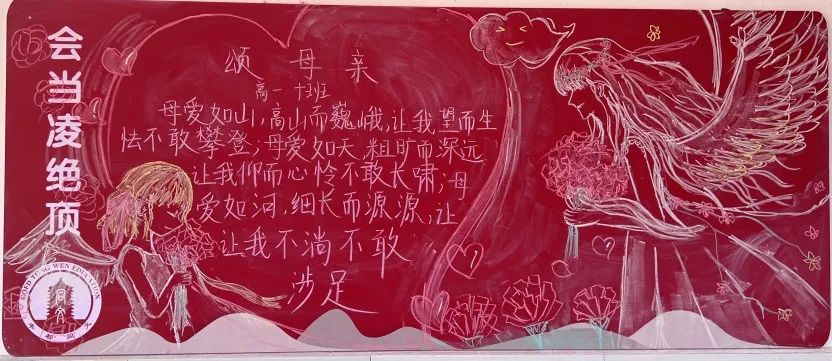 会当凌绝顶
颂母亲
高一十班
母爱如山,高山而巍峨,让我望而生
怯不敢攀登;母爱如天,粗旷而深远
让我仰而心怜不敢长啸;母
爱如河,细长而源源,让
让我不淌不敢
涉足